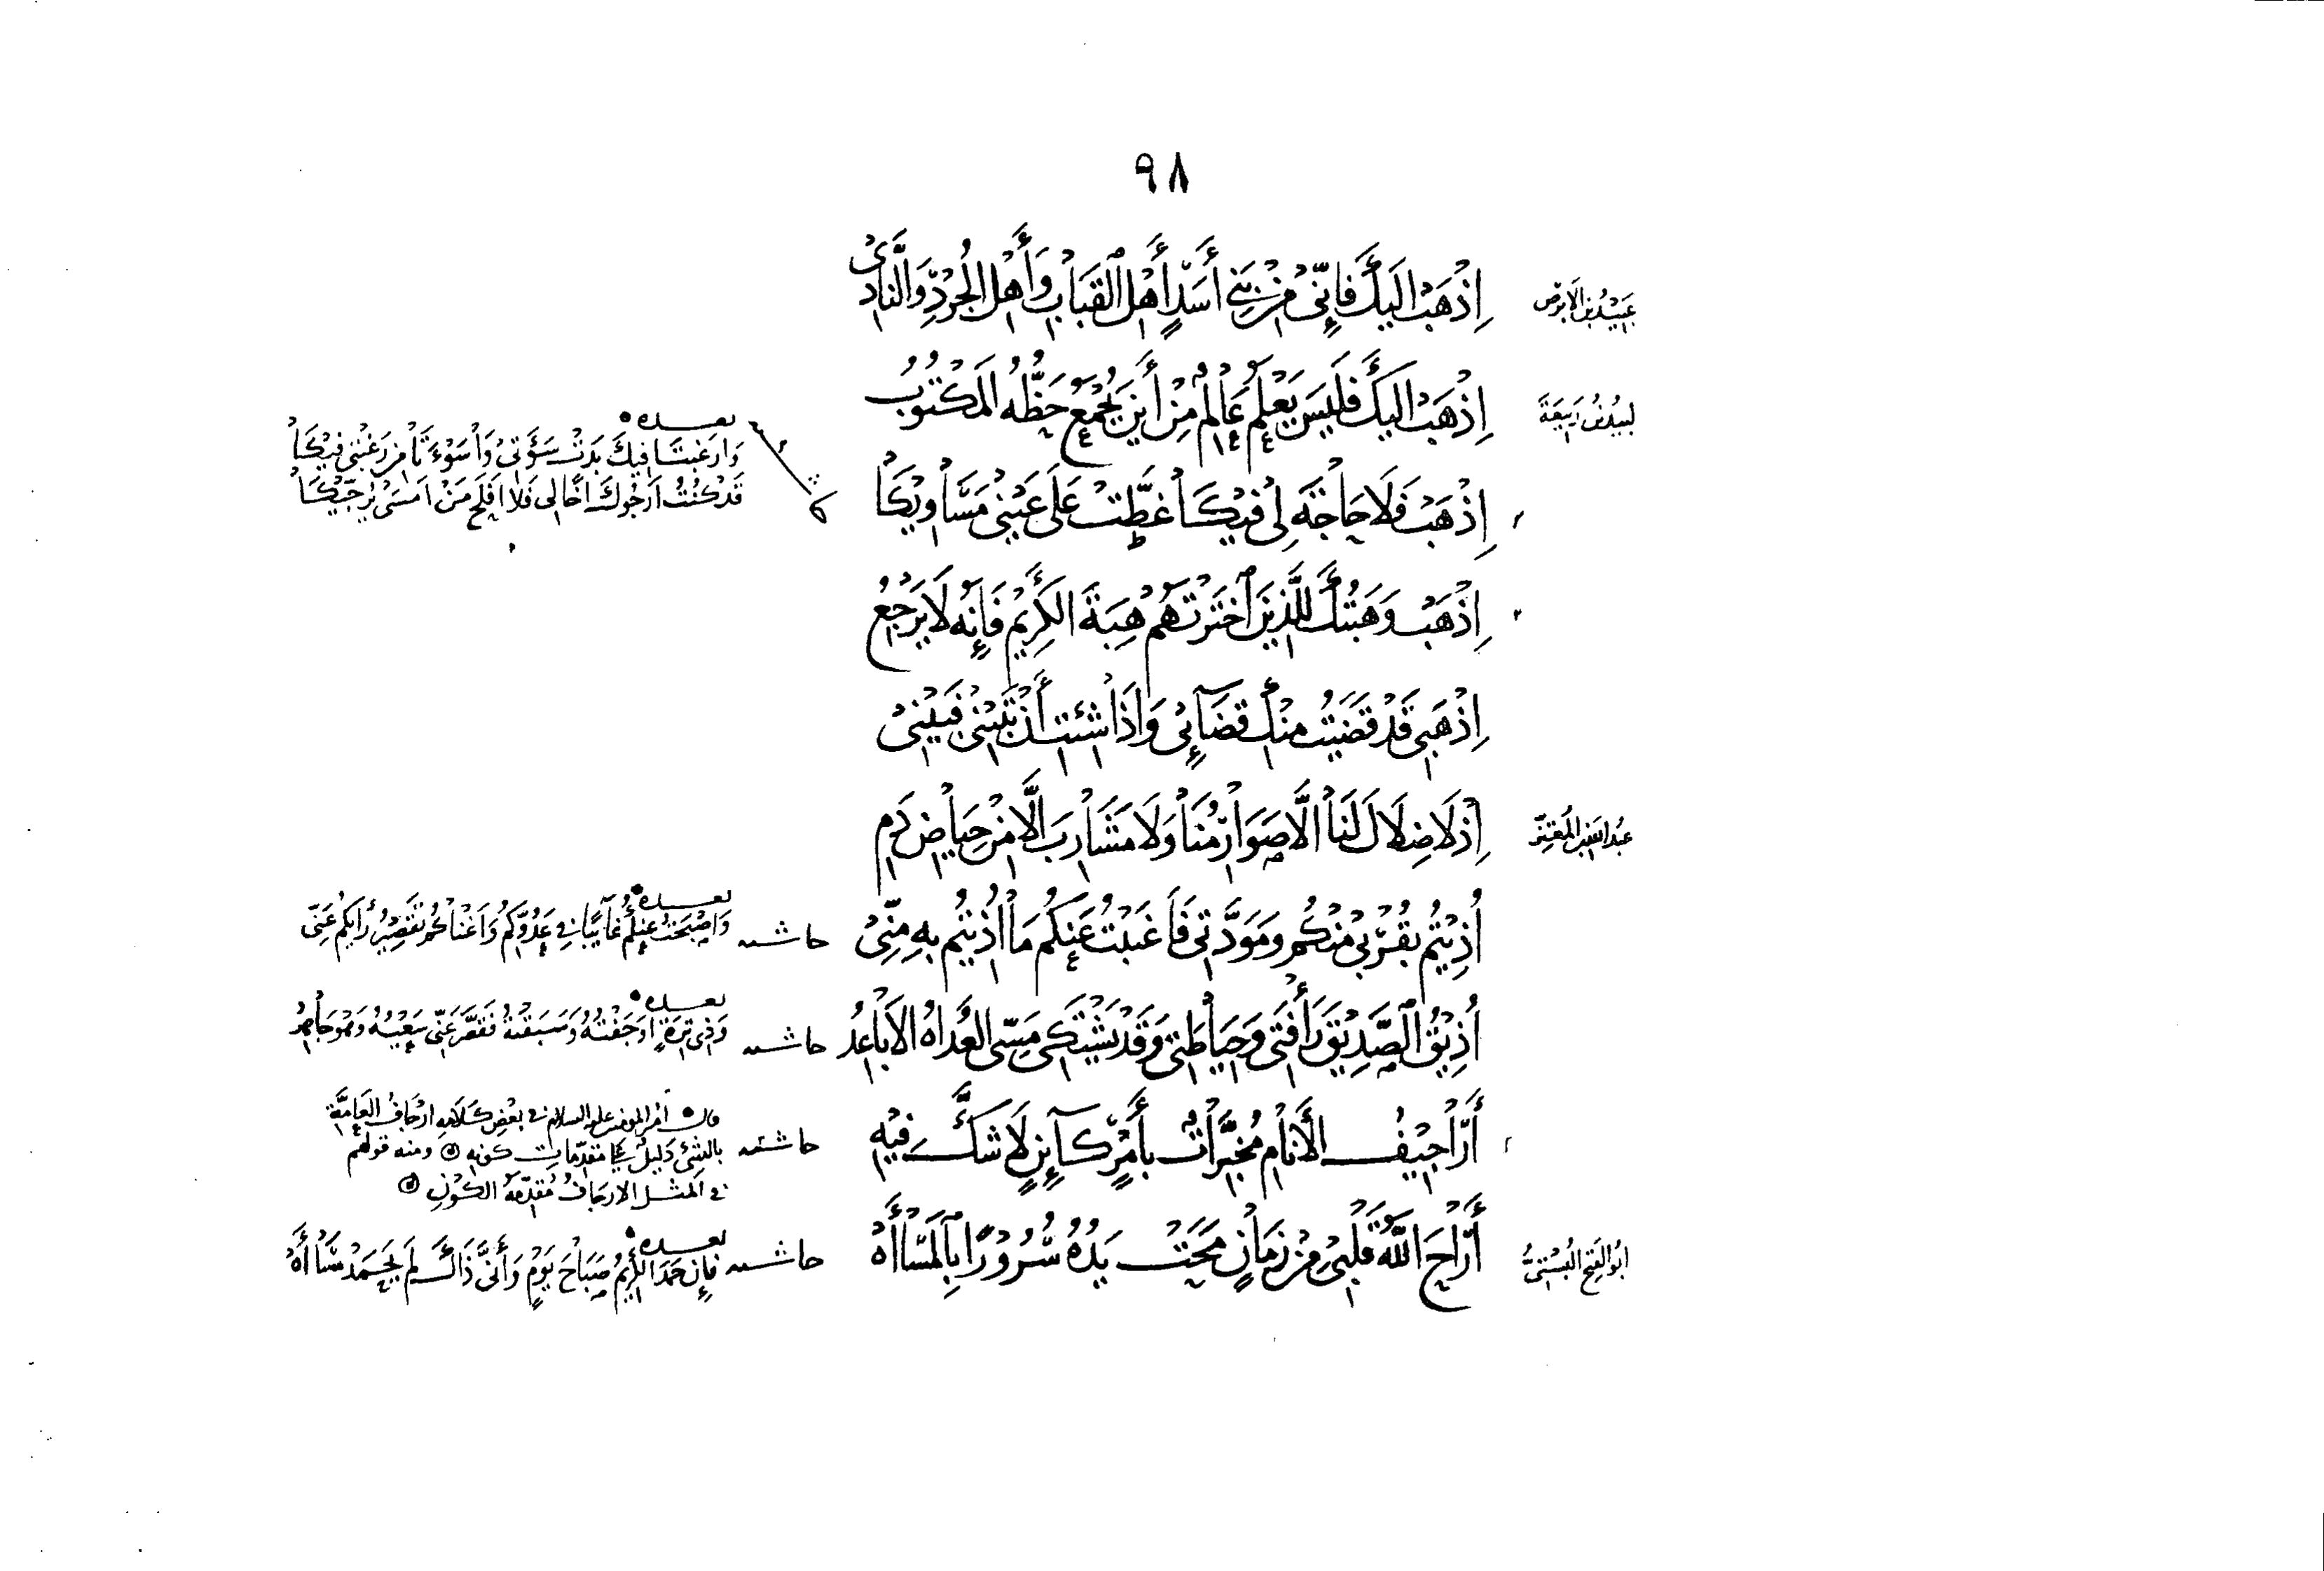 ٩٨
عَبِيْدُ بْنُ الأَبْرَصِ
إِذْهَبْ إِلَيْكَ فَإِنِّي مِنْ بَنِي أَسَدٍ أَهْلِ الْقِبَابِ وَأَهْلِ الْجُرْدِ وَالنَّادِيْ
لَبِيْدُ بْنُ رَبِيْعَةَ
إِذْهَبْ إِلَيْكَ فَلَيْسَ يَعْلَمُ عَالِمٌ مِنْ أَيْنَ يُجْمَعُ حَظُّهُ الْمَكْتُوْبُ
إِذْهَبْ فَلَا حَاجَةَ لِيْ فِيْكَا غَطَّتْ عَلَى عَيْنِيْ مَسَاوِيْكَا
بعده
وَارَغْبَتَا فِيْكَ بَدَتْ سَوْءَتِيْ وَاسَوْءَتَا مِنْ رَغْبَتِيْ فِيْكَا
قَدْ كُنْتُ أَرْجُوْكَ أَخًا لِيْ فَلَا أَفْلَحَ مَنْ أَمْسَى يُرَجِّيْكَا
إِذْهَبْ وَهَبْتُكَ لِلَّذِيْنَ اخْتَرْتَهُمْ هِبَةَ الْكَرِيْمِ فَإِنَّهُ لَا يَرْجِعُ
إِذْهَبِيْ قَدْ قَضَيْتُ مِنْكِ قَضَائِيْ وَإِذَا شِئْتِ أَنْ تَبِيْنِيْ فَبِيْنِيْ
إِذْ لَا ضِلَالَ لَنَا إِلَّا صَوَارِمُنَا وَلَا مَشَارِبَ إِلَّا مِنْ حِيَاضِ دَمِ
أُذِيْتُمْ بِقُرْبِيْ مِنْكُمُ وَمَوَدَّتِيْ عَنْكُمُ مَا أُذِيْتُمْ بِهِ مِنِّيْ
حاشية
بعده
وَأَصْبَحْتُ عَنْكُمْ غَائِبًا فِي عَدُوِّكُمْ وَأَغْنَاكُمُ تَقْصِيْرُ رَأْيِكُمْ عَنِّي
أُذِيْقُ الصَّدِيْقَ رَأْفَتِيْ وَحِيَاطَتِيْ وَقَدْ يَشْتَكِي مِنِّي الْعُدَاةُ الأَبَاعِدُ
حاشية
بعده
وَذِي تِرَةٍ أَوْجَعْتُهُ وَسَبَقْتُهُ فَقَصَّرَ عَنِّي سَعْيُهُ وَهُوَ جَاهِدُ
أَرَاجِيْفُ الأَنَامِ مُخَبِّرَاتٌ بِأَمْرٍ كَائِنٍ لَا شَكَّ فِيْهِ
حاشية
قال أمير المؤمنين عليه السلام في بعض كلامه إرجاف العامة
بالشيء دليل على مقدمات كونه ومنه قولهم
في المثل الإرجاف مقدمة الكون
أَبُو الْفَتْحِ الْبُسْتِيُّ
أَرَاحَ اللّٰهُ قَلْبِيْ مِنْ زَمَانٍ مَحَتْ يَدُهُ سُرُوْرًا بِالْمَسَاأَةْ
حاشية
بعده
فَإِنْ حَمِدَ الْكَرِيْمُ صَبَاحَ يَوْمٍ وَأَنَّى ذَاكَ لَمْ يَحْمَدْ مَسَاأَهْ